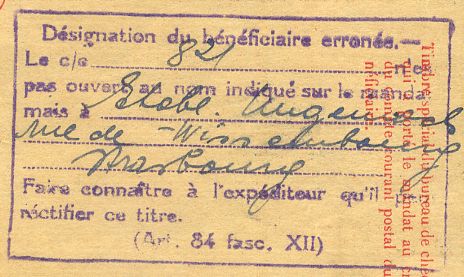 Désignation du bénéficiaire erronée.—
Le c/c 821 n'e
pas ouvert au nom indiqué sur le manda
mais à Etabl. Ungemach
rue de Wissembourg
Strasbourg
Faire connaître à l'expéditeur qu'il
rectifier ce titre.
(Art. 84 fasc. XII)
Timbre spécial du bureau de chè
qui porte le mandat au c
du compte courant postal du
néficiaire.